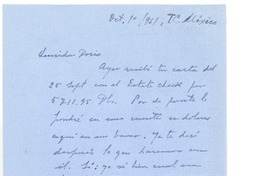 Oct. 10/951, T.º México
Querida Doris
Ayer recibí tu carta del
25 Sept con el Estate check por
5711,95 Dls. Por de pronto lo
pondré en una cuenta en dolares
aquí en un banco. Ya te diré
después lo que haremos con
él. Si; yo se bien